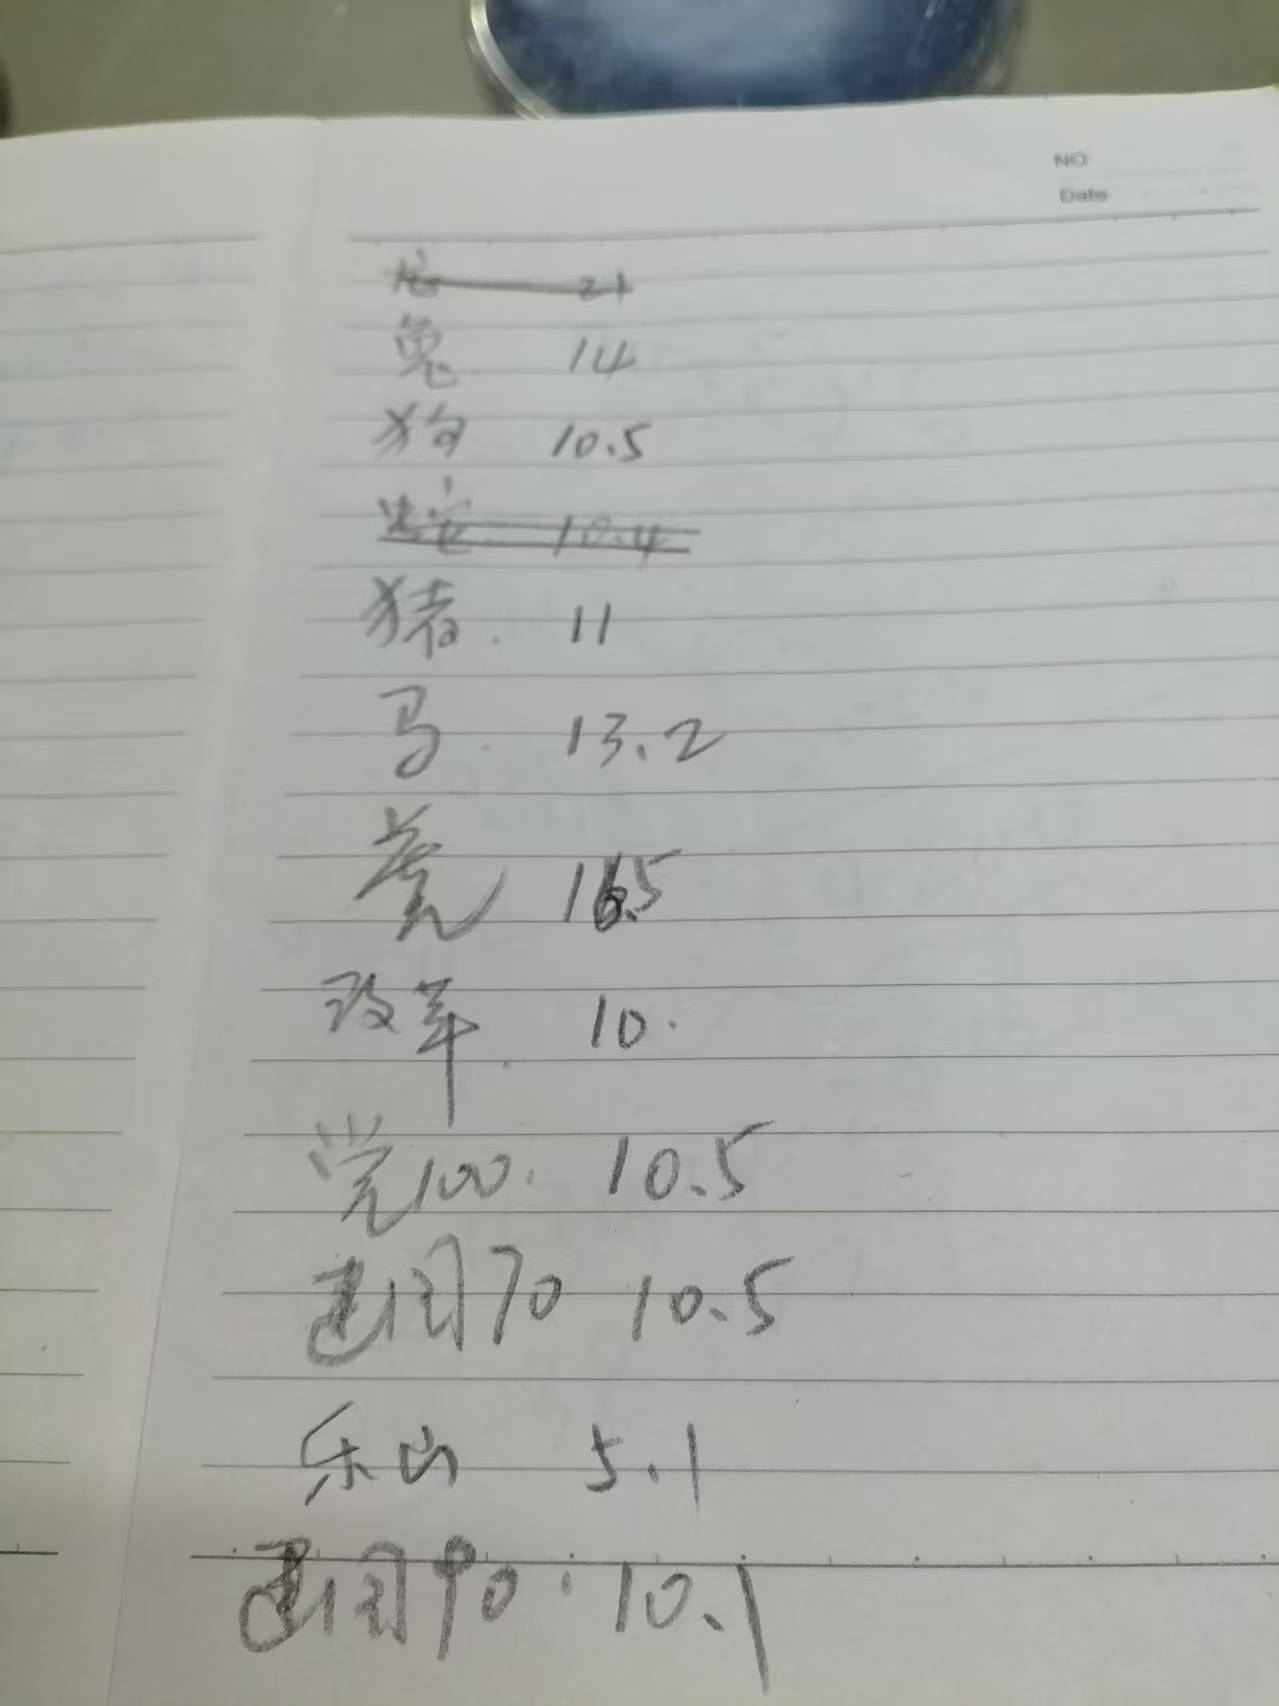 NO
Date
龙 21
兔 14
狗 10.5
蛇 10.4
猪. 11
马. 13.2
虎 16.5
改革. 10.
党100. 10.5
建国70 10.5
乐山 5.1
建国90. 10.1